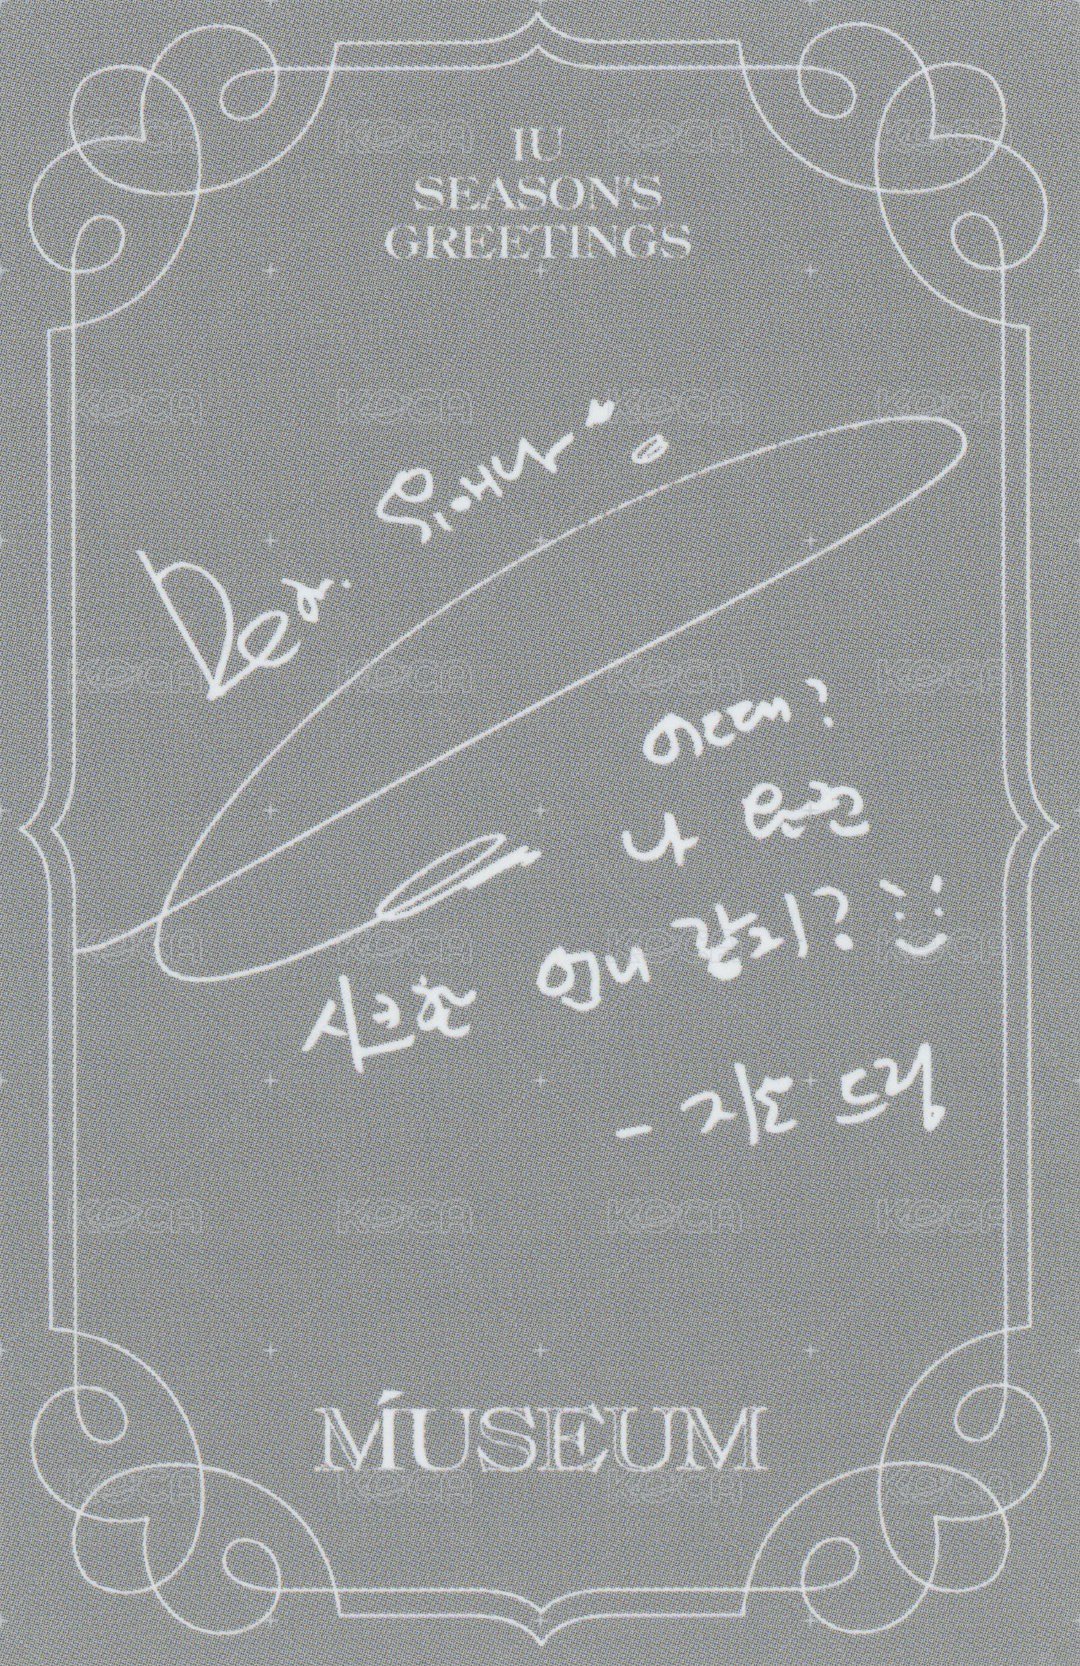 IU
SEASON'S
GREETINGS
Dear. 유애나
어때?
나 완전
시크한 언니 같지?
- 지은 드림
MUSEUM
KOCA